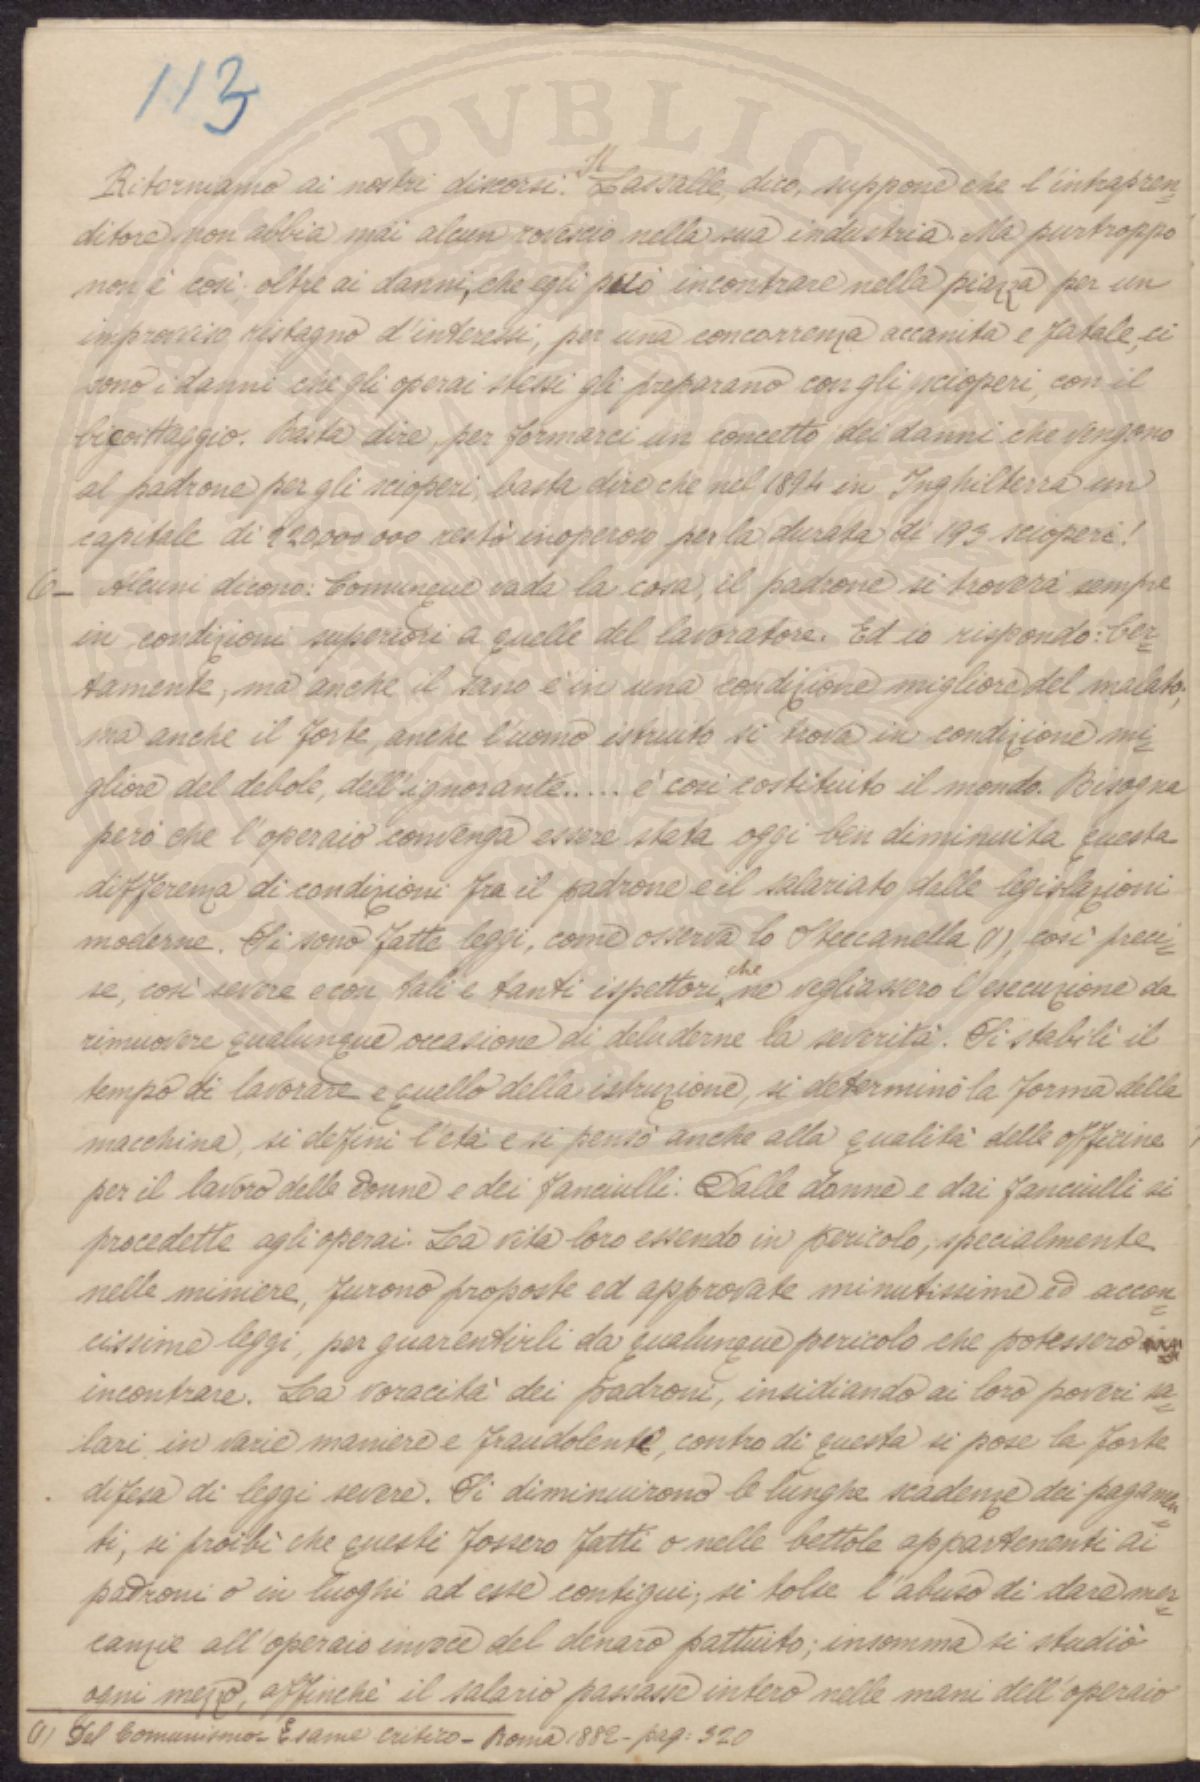 113
Ritorniamo ai nostri discorsi. Il Lassalle, dico, suppone che l'intrapren=
ditore non abbia mai alcun rovescio nella sua industria. Ma purtroppo
non è così: oltre ai danni, che egli può incontrare nella piazza per un
improvviso ristagno d'interessi, per una concorrenza accanita e fatale, ci
sono i danni che gli operai stessi gli preparano con gli scioperi, con il
bicoittaggio. Basta dire, per formarci un concetto dei danni che vengono
al padrone per gli scioperi, basta dire che nel 1894 in Inghilterra un
capitale di 220000 000 restò inoperoso per la durata di 193 scioperi!
6_ Alcuni dicono: Comunque vada la cosa, il padrone si troverà sempre
in condizioni superiori a quelle del lavoratore. Ed io rispondo: Cer=
tamente, ma anche il sano è in una condizione migliore del malato,
ma anche il forte, anche l'uomo istruito si trova in condizione mi=
gliore del debole, dell'ignorante..... è così costituito il mondo. Bisogna
però che l'operaio convenga essere stata oggi ben diminuita questa
differenza di condizioni fra il padrone e il salariato dalle legislazioni
moderne. Si sono fatte leggi, come osserva lo Steccanella (1), così preci=
se, così severe e con tali e tanti ispettori, che ne vegliassero l'esecuzione da
rimuovere qualunque occasione di deluderne la severità. Si stabilì il
tempo di lavorare e quello della istruzione, si determinò la forma della
macchina, si definì l'età e si pensò anche alla qualità delle officine
per il lavoro delle donne e dei fanciulli. Dalle donne e dai fanciulli si
procedette agli operai. La vita loro essendo in pericolo, specialmente
nelle miniere, furono proposte ed approvate minutissime ed accon=
cissime leggi, per guarentirli da qualunque pericolo che potessero
incontrare. La voracità dei padroni, insidiando ai loro poveri sa=
lari in varie maniere e fraudolente, contro di questa si pose la forte
difesa di leggi severe. Si diminuirono le lunghe scadenze dei pagamen=
ti, si proibì che questi fossero fatti o nelle bettole appartenenti ai
padroni o in luoghi ad esse contigui; si tolse l'abuso di dare mer=
canzie all'operaio invece del denaro pattuito; insomma si studiò
ogni mezzo, affinchè il salario passasse intero nelle mani dell'operaio
(1) Del Comunismo - Esame critico - Roma 1882 - pag: 320